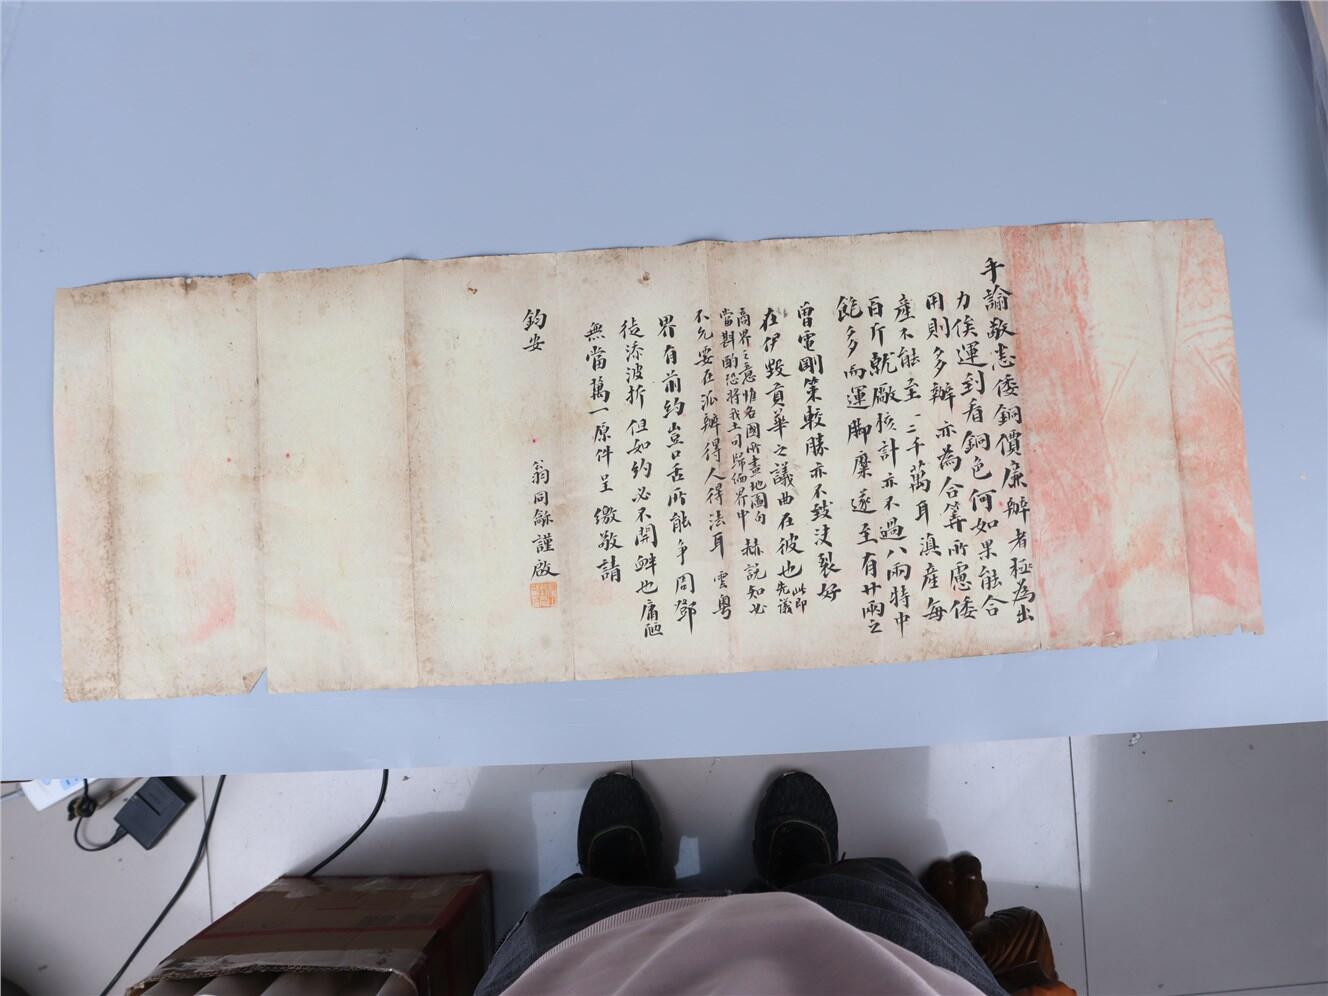 手諭敬悉倭銅價廉辦者極為出
力俟運到看銅色何如果能合
用則多辦亦為合算所慮倭
產不能至一二千萬耳滇產每
百斤就廠核計亦不過八兩特中
飽多而運腳糜遂至有廿兩之
曾電剛策較勝亦不致決裂好
在伊毀貢華之議曲在彼也此即先議
商界之意惟各國所畫地圖句
當斟酌恐將我土司歸緬界中 赫說知必
不允要在派辦得人得法耳 雲粵
界有前約豈口舌所能爭 周鄧
徒添波折但如約必不開衅也庸陋
無當萬一原件呈繳敬請
鈞安
翁同龢謹啟